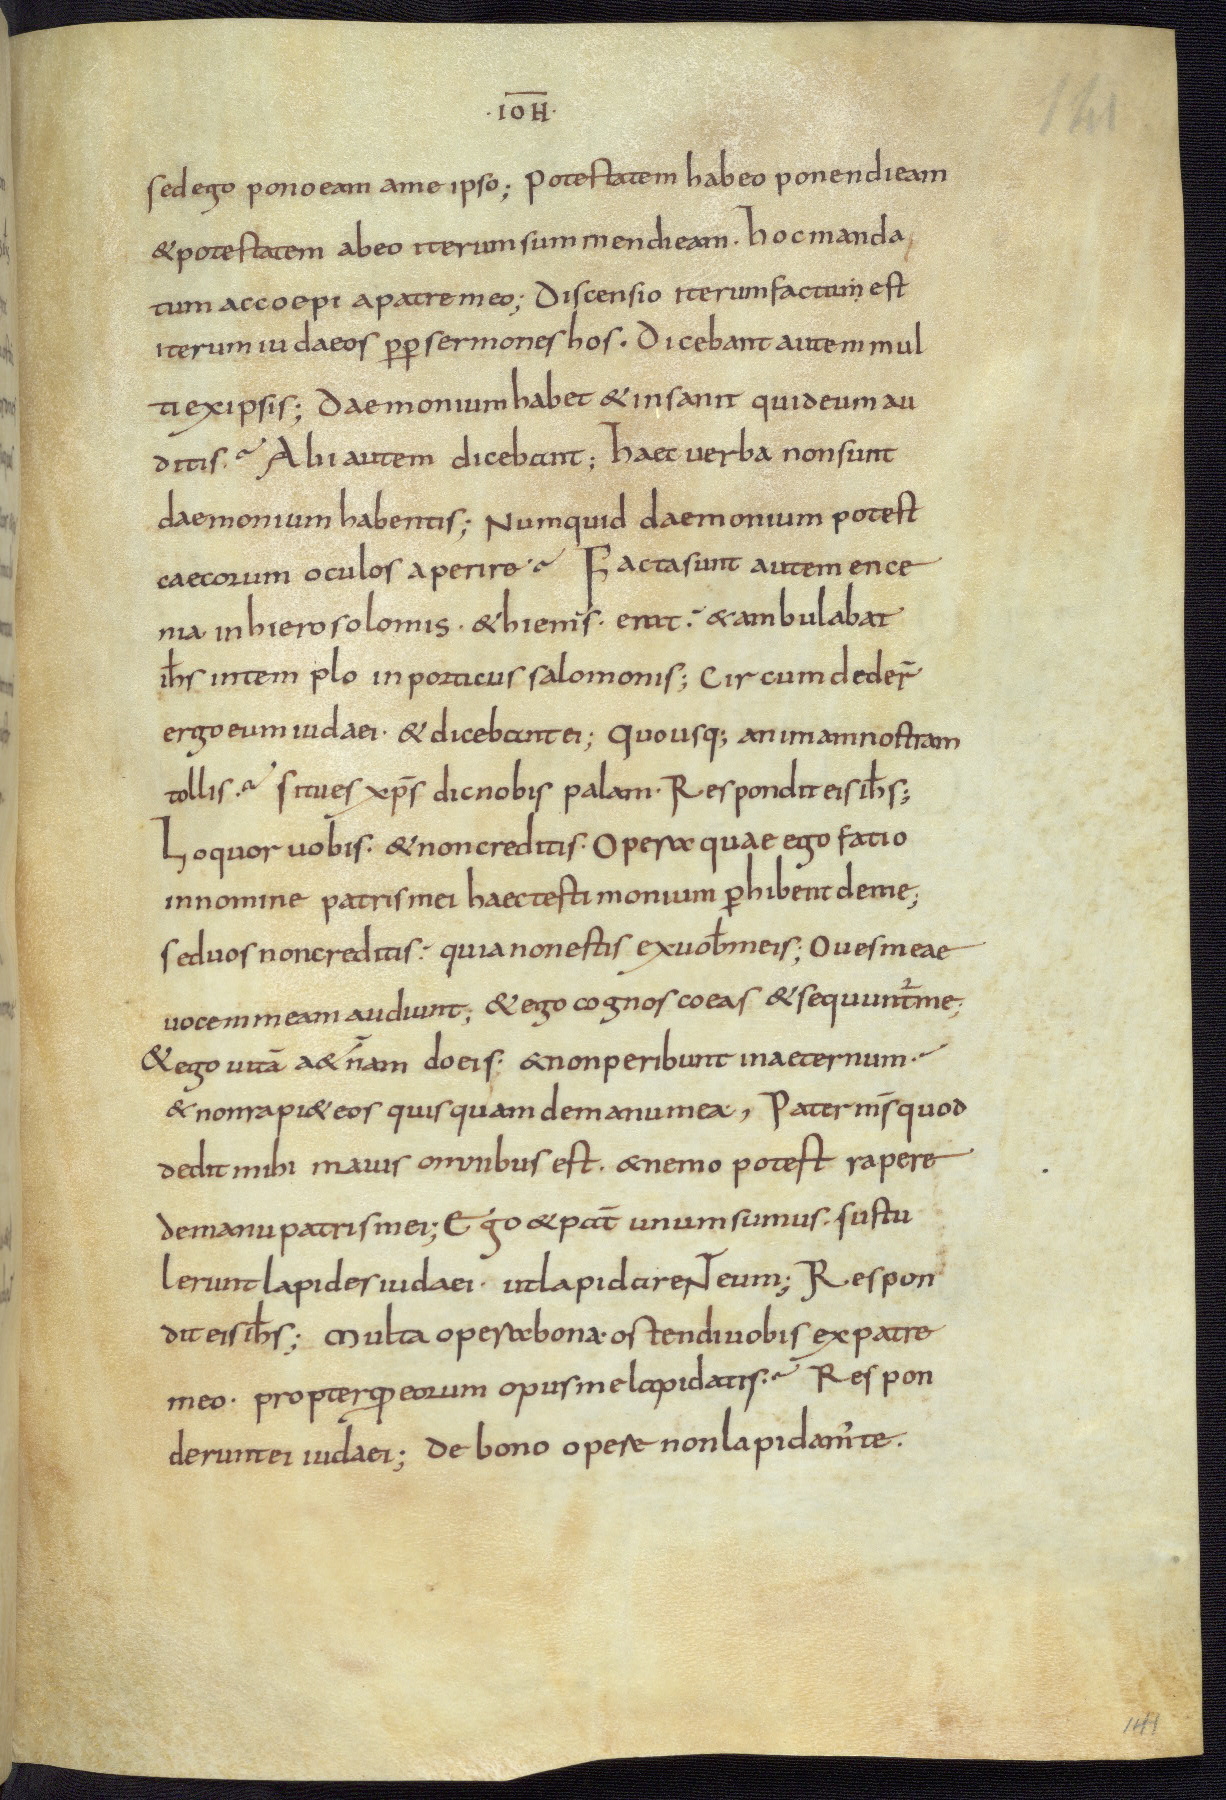 ·IOH̅·
141
sed ego pono eam a me ipso; Potestatem habeo ponendi eam
& potestatem abeo iterum summendi eam. hoc manda
tum accoepi a patre meo; Discensio iterum factum est
iterum iudaeos p̲p̲ sermones hos. Dicebant autem mul
ti ex ipsis; Daemonium habet & insanit quid eum au
ditis. Alii autem dicebant; haec uerba non sunt
daemonium habentis; Numquid daemonium potest
caecorum oculos aperire. Facta sunt autem ence
nia in hierosolomis. & hiems. erat. & ambulabat
ih̅s in templo in porticus salomonis; Circumdeder̅
ergo eum iudaei. & dicebant ei; Quousq; animam nostram
tollis. Si tu es xp̅s dic nobis palam. Respondit eis ih̅s;
Loquor uobis. & non creditis. Opera quae ego fatio
in nomine patris mei haec testimonium p̲hibent de me;
sed uos non creditis. quia non estis ex uob̅ meis; Oues meae
uocem meam audiunt; & ego cognosco eas & sequunt̅ me;
& ego uitā a&̅nam do eis. & non peribunt in aeternum.
& non rapi& eos quisquam de manu mea, Pater m̅s quod
dedit mihi maius omnibus est. & nemo potest rapere
de manu patris mei; Ego & pat̅ unum sumus. sustu
lerunt lapides iudaei. ut lapidareNT eum; Respon
dit eis ih̅s; Multa opera bona ostendi uobis ex patre
meo. propter q̲ eorum opus me lapidatis. Respon
derunt ei iudaei; De bono opere non lapidam' te.
141